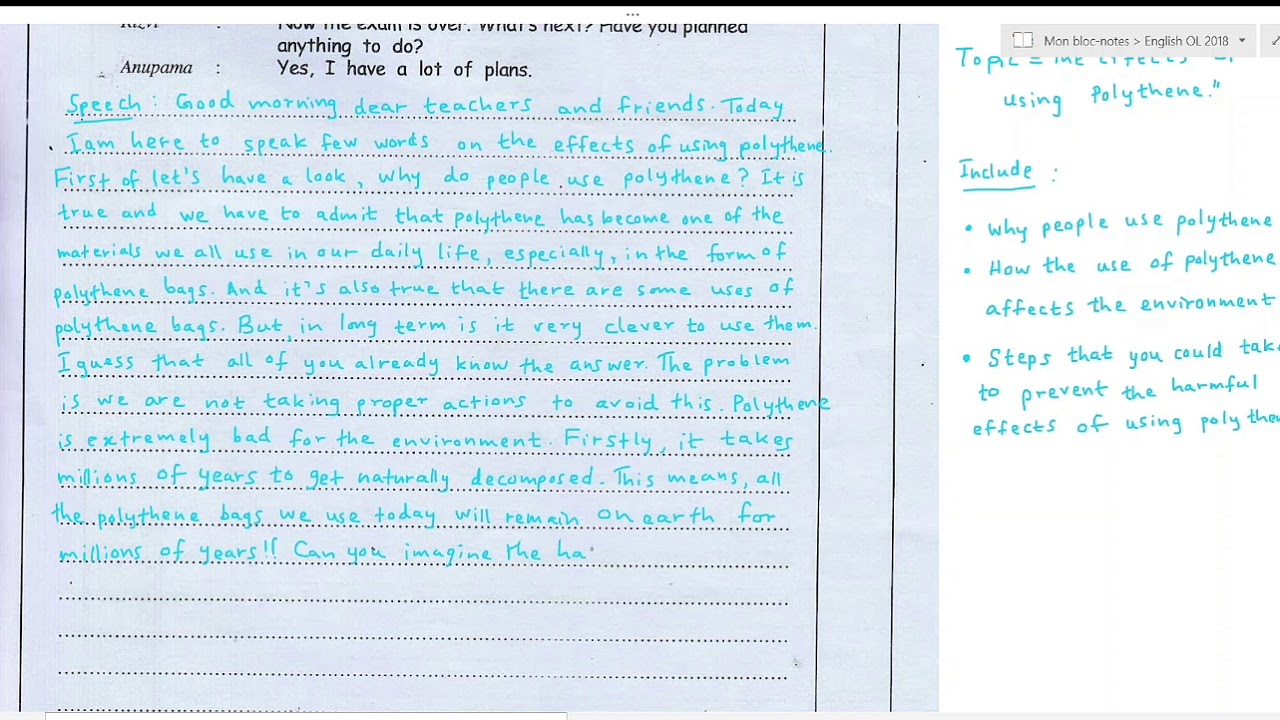 Rizvi : Now the exam is over. What's next? Have you planned
anything to do?
Anupama : Yes, I have a lot of plans.
Speech : Good morning dear teachers and friends. Today
I am here to speak few words on the effects of using polythene.
First of let's have a look, why do people use polythene? It is
true and we have to admit that polythene has become one of the
materials we all use in our daily life, especially, in the form of
polythene bags. And it's also true that there are some uses of
polythene bags. But, in long term is it very clever to use them.
I guess that all of you already know the answer. The problem
is we are not taking proper actions to avoid this. Polythene
is extremely bad for the environment. Firstly, it takes
millions of years to get naturally decomposed. This means, all
the polythene bags we use today will remain on earth for
millions of years!! Can you imagine the ha
...
Mon bloc-notes > English OL 2018
Topic = The Effects of
using Polythene."
Include :
• Why people use polythene
• How the use of polythene
affects the environment
• Steps that you could take
to prevent the harmful
effects of using polythe